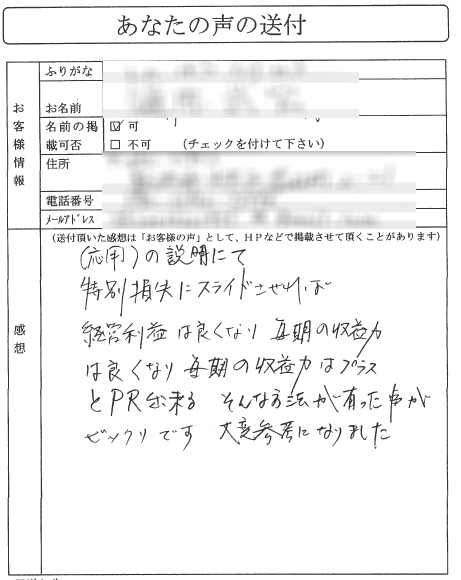 あなたの声の送付
お客様情報
ふりがな
お名前
名前の掲載可否
☑ 可
□ 不可 (チェックを付けて下さい)
住所
電話番号
メールアドレス
感想
(送付頂いた感想は「お客様の声」として、HPなどで掲載させて頂くことがあります)
(応用)の説明にて
特別損失にスライドさせれば
経営利益は良くなり毎期の収益力
は良くなり毎期の収益力はプラス
とPR出来る そんな方法が有った事が
ビックリです 大変参考になりました